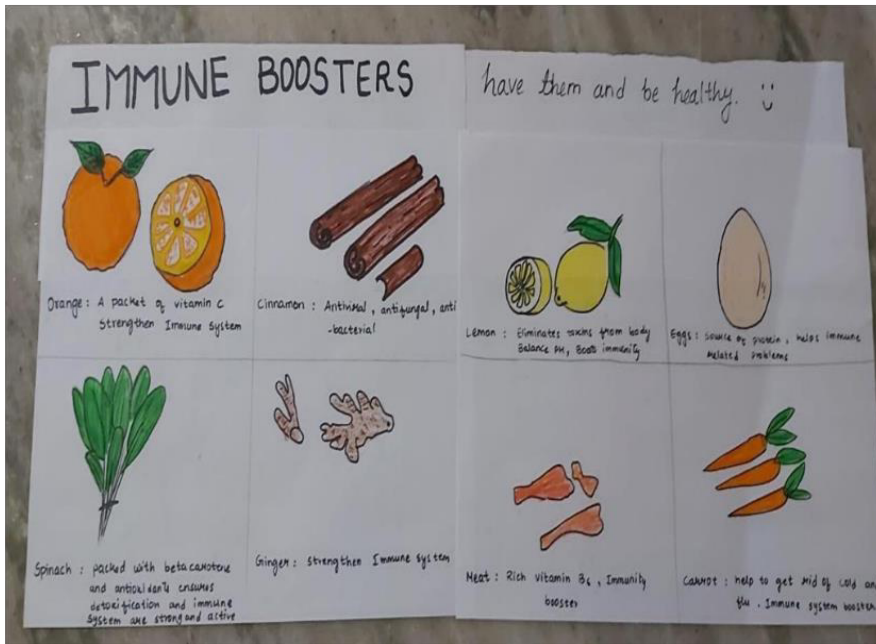 IMMUNE BOOSTERS
have them and be healthy.
Orange : A packet of vitamin C
Strengthen Immune System
Cinnamon : Antiviral, antifungal, anti
-bacterial
Lemon : Eliminates toxins from body
Balance PH, Boost immunity
Eggs : source of protein, helps immune
related problems
Spinach : packed with beta carotene
and antioxidents ensures
detoxification and immune
system are strong and active
Ginger : strengthen Immune system
Meat : Rich vitamin B6, Immunity
booster
Carrot : help to get rid of cold an
flu. Immune system booster